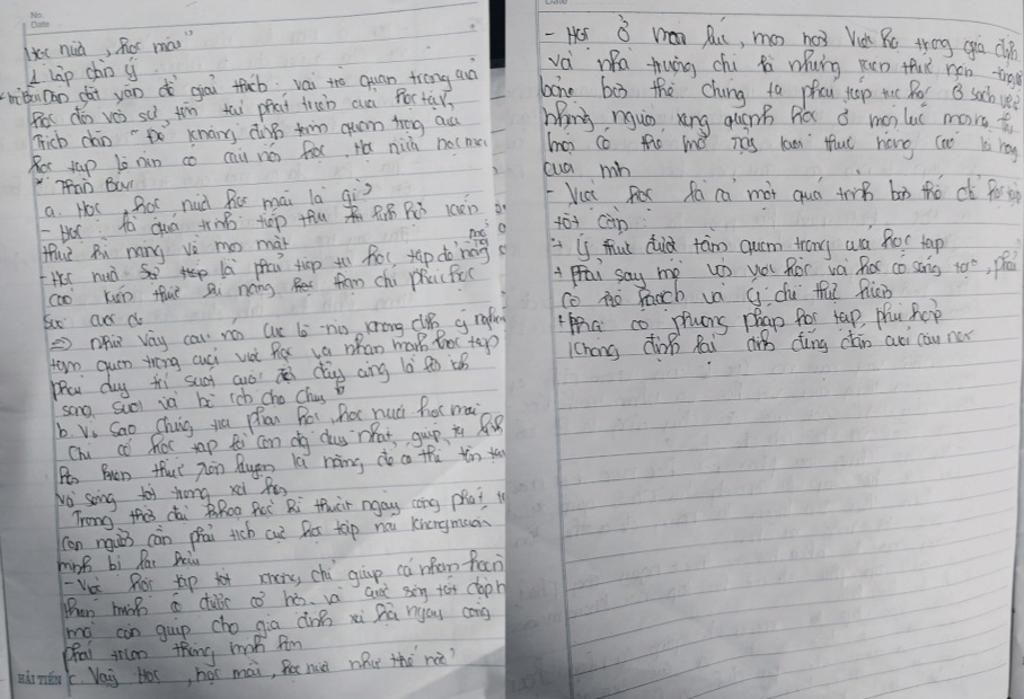 No.
Date
Học nữa, học mãi"
1 Lập dàn ý
dẫn dắt vấn đề giải thích vai trò quan trọng của
học đối với sự, tồn tại phát triển của học tập,
Trích dẫn "Để khẳng định tầm quan trọng của
học tập lê nin có câu nói học, Học nữa học mãi
* Thân Bài
a. Học học nữa học mãi là gì?
- Học là quá trình tiếp thu lĩnh hội kiến
thức kĩ năng về mọi mặt
- Học nữa là phải tiếp tu học tập để nâng
cao kiến thức kĩ năng học thậm chí phải học
suốt cuộc đời
=> Như vậy câu nói của lê nin khẳng định ý nghĩa
tầm quan trọng của việc học và nhấn mạnh học tập
phải duy trì suốt cuộc đời đây cũng là lời
song, suốt và bổ ích cho chúng ta
b. Vì sao chúng ta phải học, học nữa học mãi
Chỉ có học tập là con đg duy nhất, giúp ta lĩnh
hội kiến thức rèn luyện kĩ năng để có thể tồn tại
và sống tốt trong xã hội
Trong thời đại khoa học kĩ thuật ngày càng phát
con người cần phải tích cực học tập nếu không muốn
mình bị lạc hậu
- Việc học tập tốt không chỉ giúp cá nhân hoàn
thiện mình có được cơ hội và cuộc sống tốt đẹp
mà còn giúp cho gia đình xã hội ngày càng
phát triển thịnh hơn
HẢI TIẾN c. Vậy Học, học mãi, học nữa như thế nào?
Date
- Học ở mọi lúc, mọi nơi Việc học trong gia đình
và nhà trường chỉ là những kiến thức nền tảng
bởi thế chúng ta phải tiếp tục học ở sách vở
những người xung quanh học ở mọi lúc mọi nơi
có thể mở rộng kiến thức nâng cao
của mh
- Việc học là cả một quá trình bởi thế để học tập
tốt cần:
+ Ý thức được tầm quan trọng của học tập
+ Phải say mê với việc học và học có sáng tạo, phải
có kế hoạch và ý chí thực hiện
+ Phải có phương pháp học tập, phù hợp
Khẳng định lại tính đúng đắn của câu nói